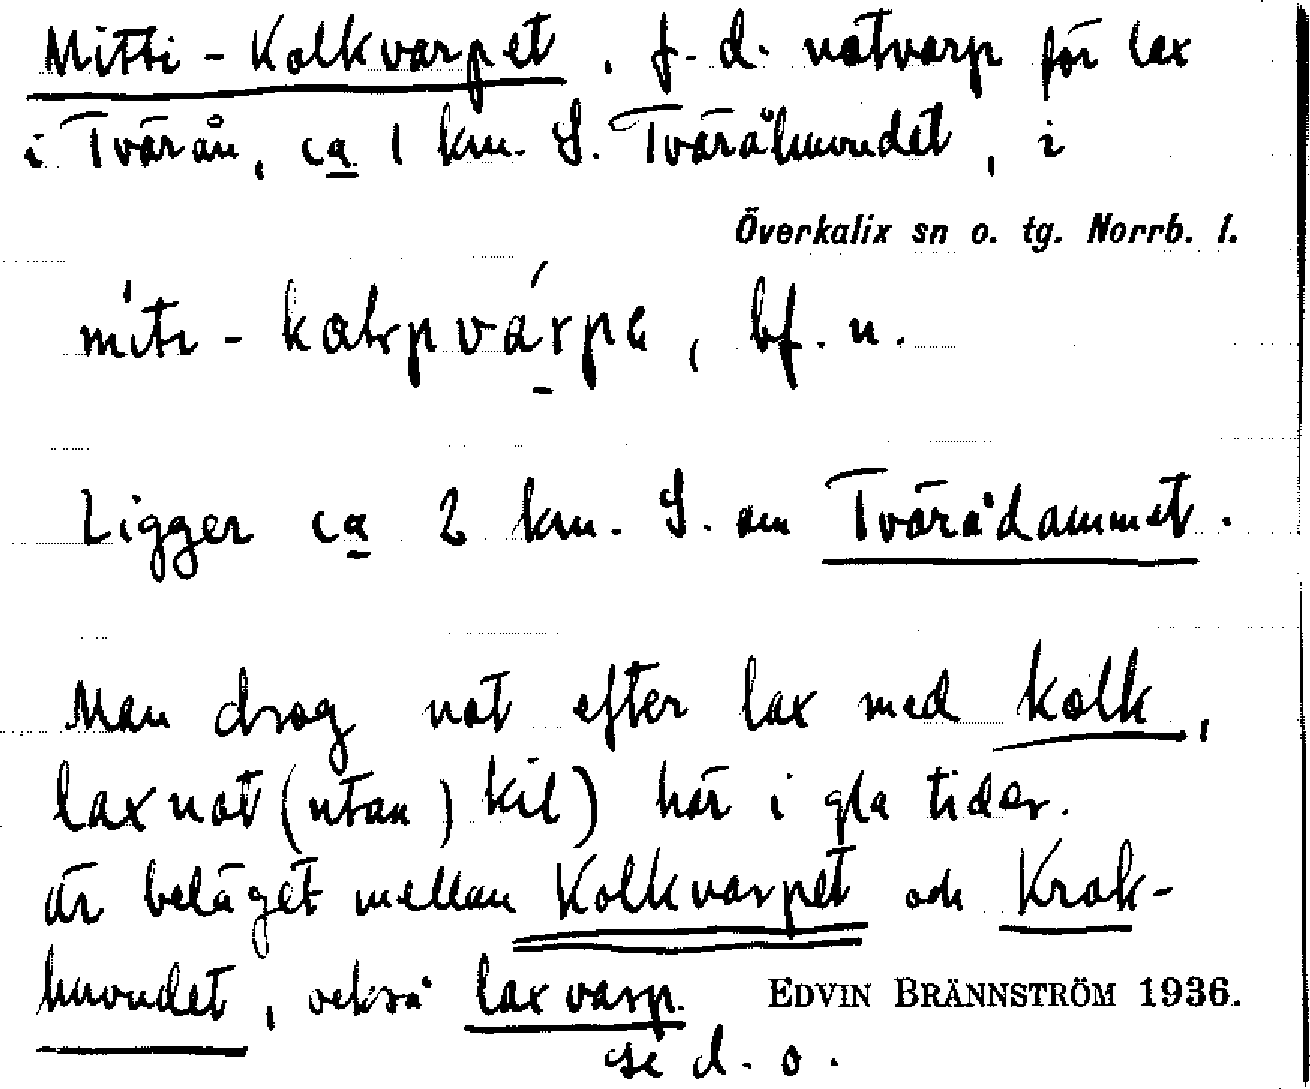 Mitti-Kolkvarpet, f.d. notvarp för lax
i Tvärån, ca 1 km. S. Tväråhuvudet, i
Överkalix sn o. tg. Norrb. l.
bf. n.
Ligger ca 2 km. S. om Tvärådammet.
Man drog not efter lax med kolk,
laxnot (utan) kil) här i gla tider.
är beläget mellan Kolkvarpet och Krok-
huvudet, också laxvarp. EDVIN BRÄNNSTRÖM 1936.
se d. o.